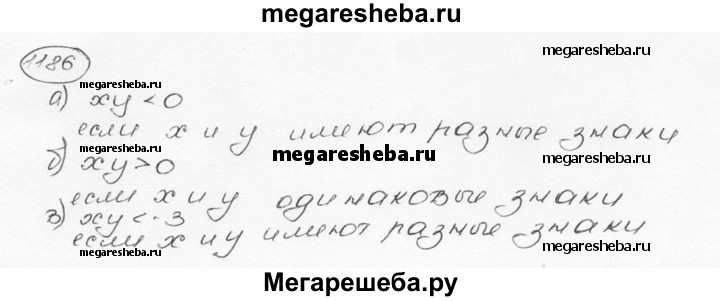 megaresheba.ru
1186
megaresheba.ru
megaresheba.ru
а) xy < 0
если x и y имеют разные знаки
megaresheba.ru
б) xy > 0
megaresheba.ru
если x и y одинаковые знаки
в) xy < -3
если x и y имеют разные знаки
megaresheba.ru
megaresheba.ru
Мегарешеба.ру